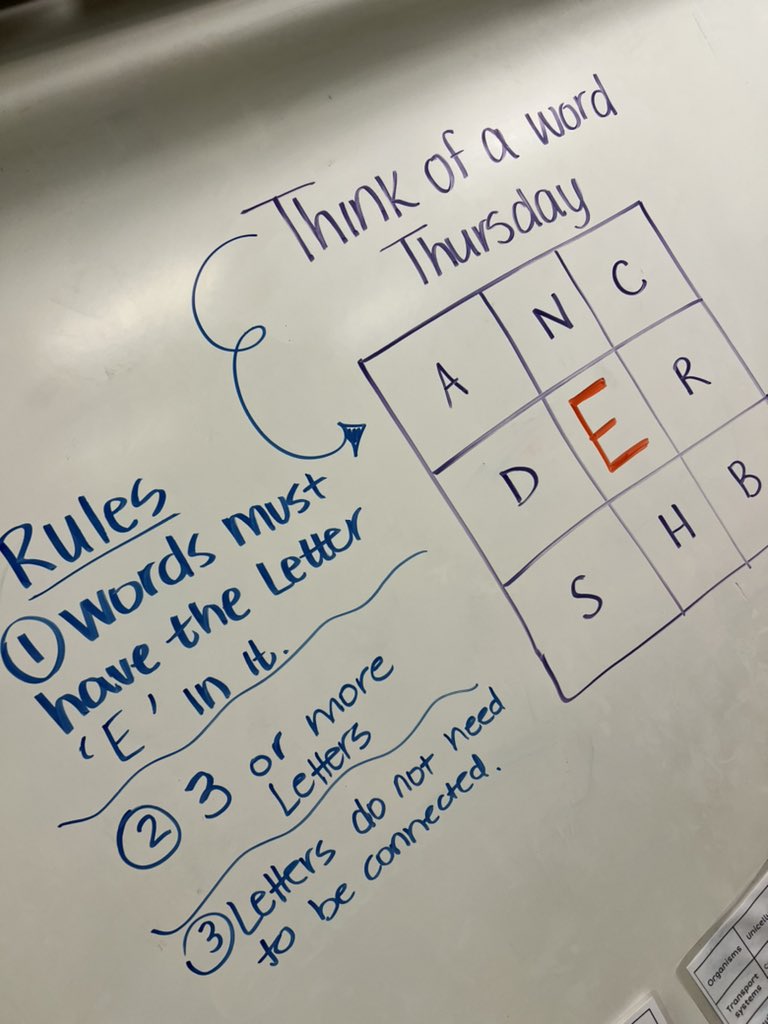 Think of a word
Thursday
A N C
D E R
S H B
Rules
① Words must
have the Letter
'E' in it.
② 3 or more
Letters
③ Letters do not need
to be connected.
Organisms
Transport
systems